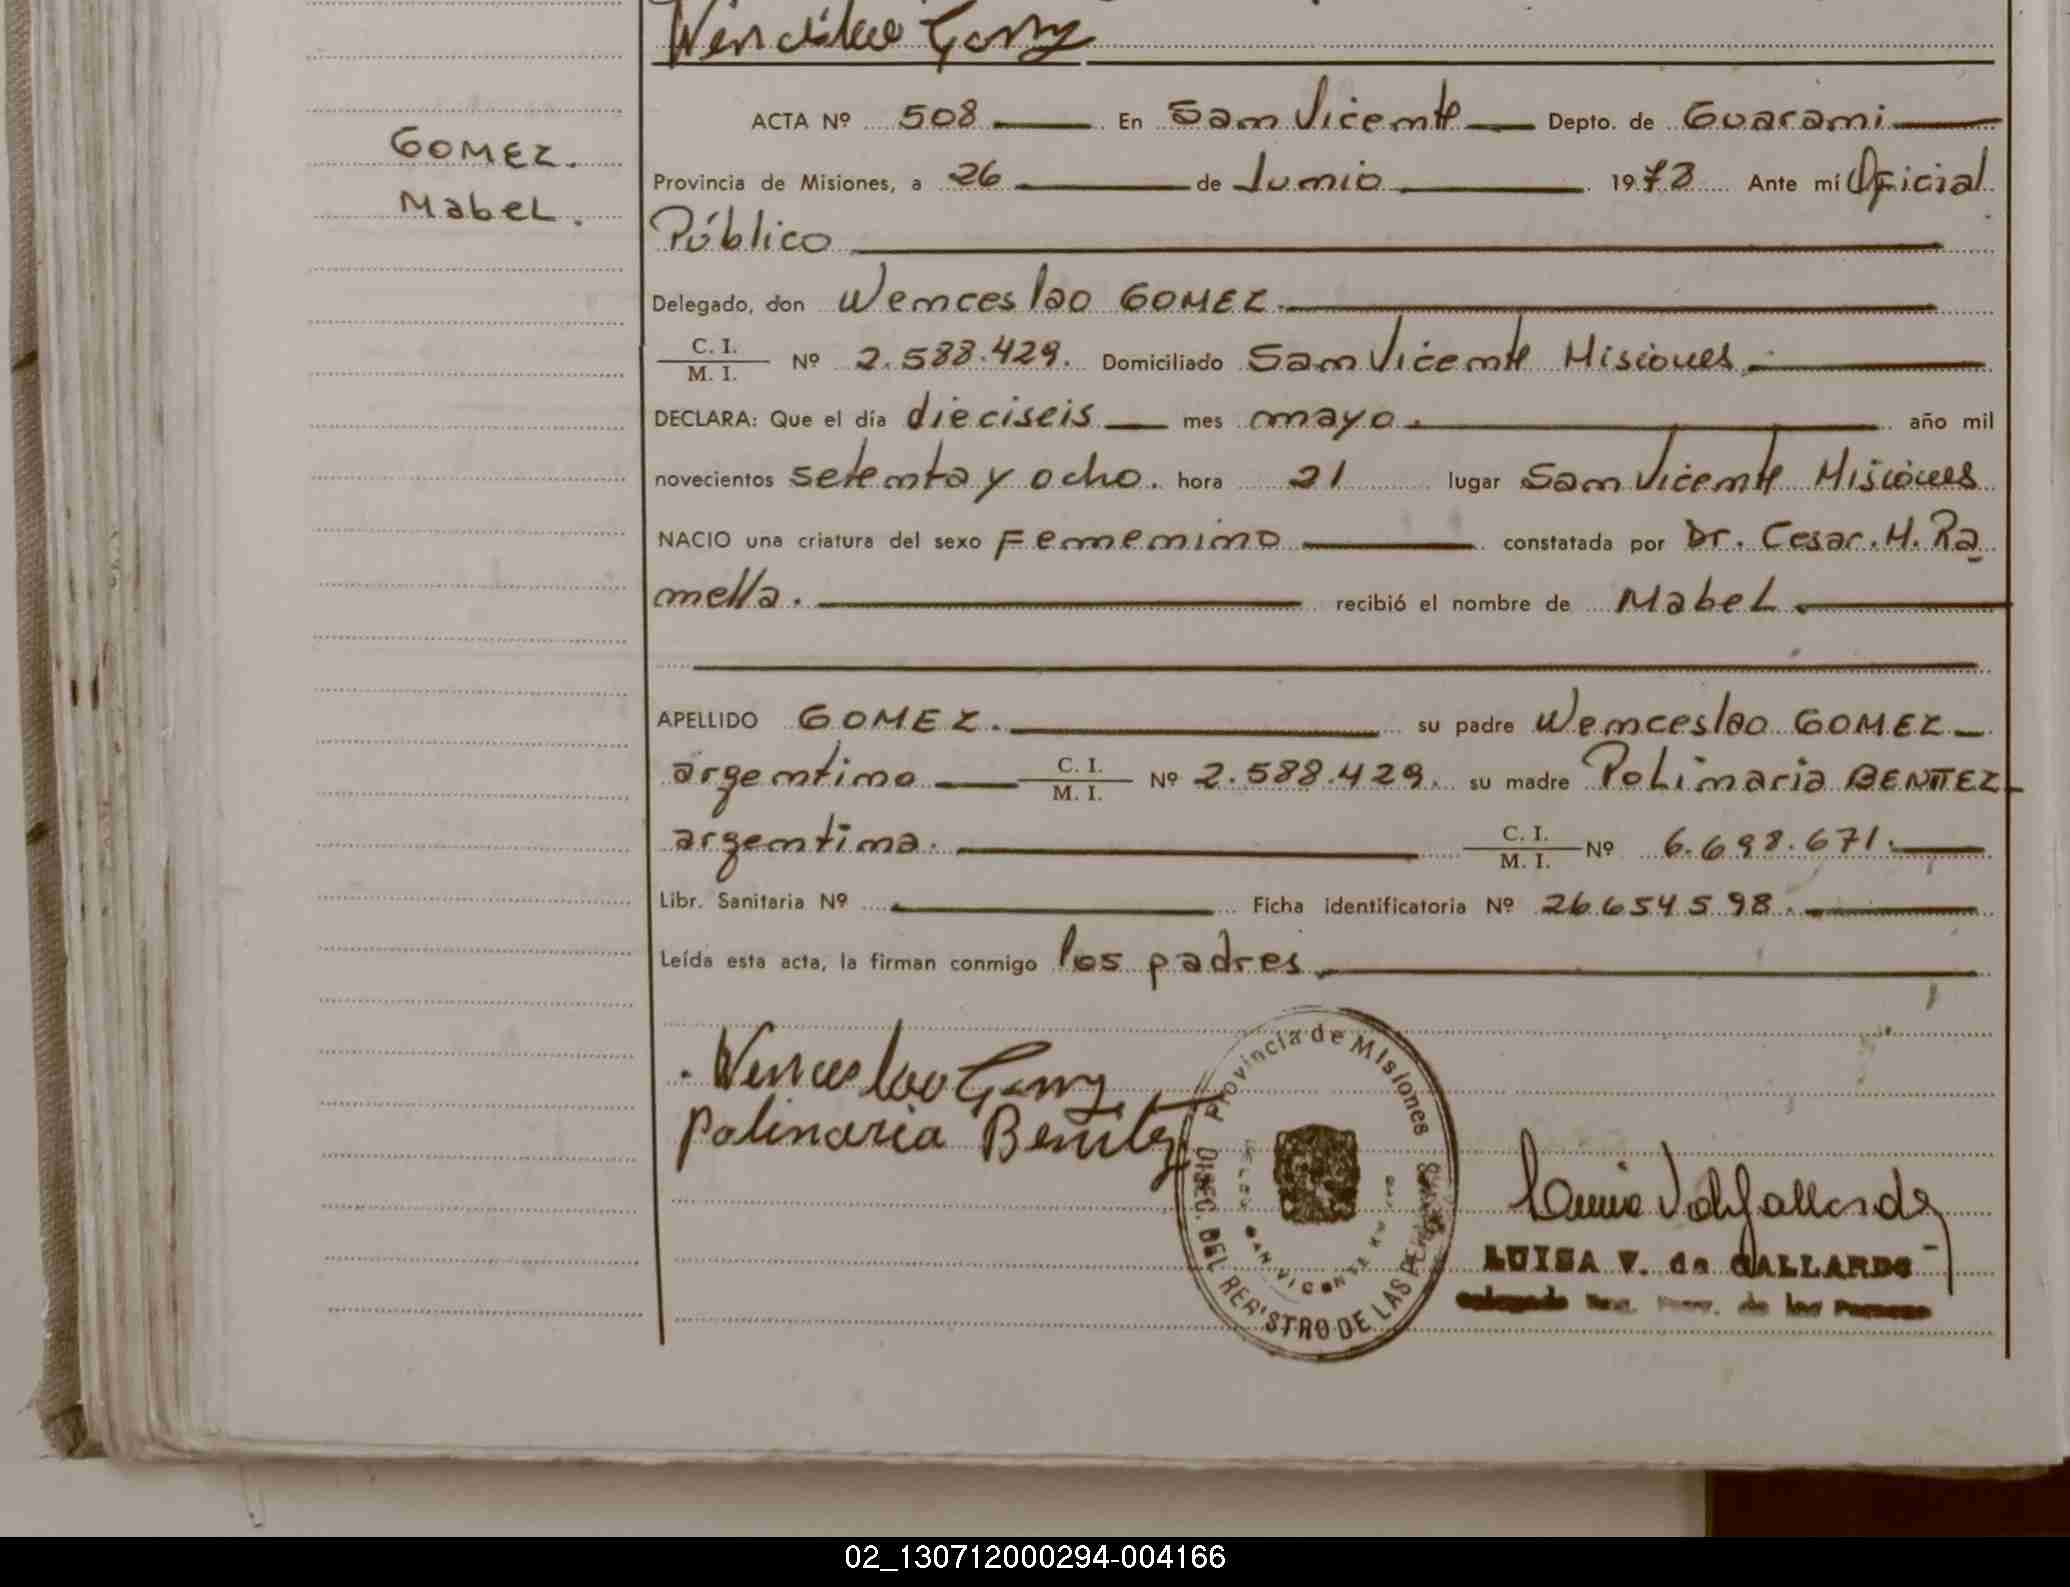 Wenceslao Gomez
ACTA Nº 508 En San Vicente Depto. de Guarani
GOMEZ.
Mabel.
Provincia de Misiones, a 26 de Junio 1978 Ante mí Oficial
Público
Delegado, don Wenceslao GOMEZ.
C. I.
M. I. Nº 2.588.429. Domiciliado San Vicente Misiones
DECLARA: Que el día dieciseis mes mayo. año mil
novecientos setenta y ocho. hora 21 lugar San Vicente Misiones
NACIO una criatura del sexo Femenino constatada por Dr. Cesar. H. Ra
mella. recibió el nombre de Mabel
APELLIDO GOMEZ. su padre Wenceslao GOMEZ
argentino C. I. M. I. Nº 2.588.429. su madre Polinaria BENITEZ
argentina. C. I. M. I. Nº 6.698.671.
Libr. Sanitaria Nº Ficha identificatoria Nº 26.654.598.
Leída esta acta, la firman conmigo los padres
Wenceslao Gomez
Polinaria Benitez
Provincia de Misiones
DIREC. DEL REGISTRO DE LAS PERSONAS
SAN VICENTE
LUISA V. de GALLARDO
02_130712000294-004166